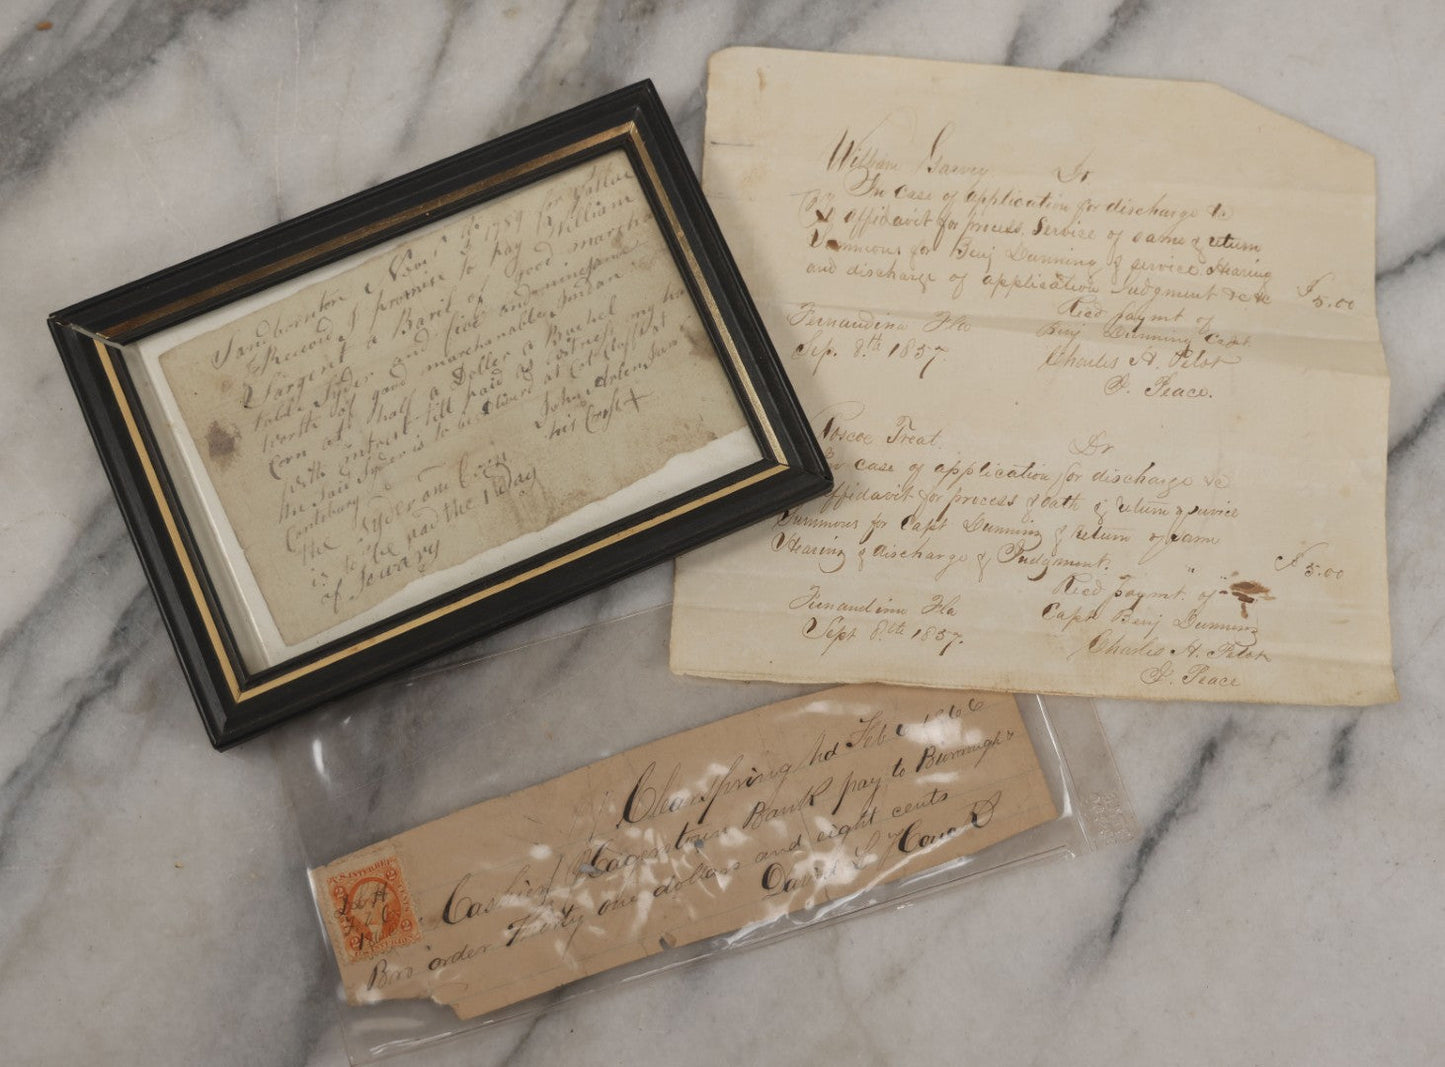 Sandbornton Novr 1789 for Vallue
Received I promise to pay William
Sargent a Baril of good marcha
Syder and five and
worth of good marchanable Indian
Corn at half a Doller a Bushel
with intrest till paid as witness my ha
the Said Syder is to be at
Canterbury John
his Cross +
the Syder and Corn
is to be paid the 1 Day
of
William Garvey Dr
In case of application for discharge to
affidavit for process Service of same & return
Summons for Benj Dunning & service Hearing
and discharge of application Judgment &c &c $5.00
Recd paymt of
Fernandina Fla Benj Dunning Capt
Sep. 8th 1857. Charles A. Pelot
J. Peace.
Roscoe Treat. Dr
case of application for discharge &c
affidavit for process & oath & return of service
Summons for Capt Dunning & return of same
Hearing & discharge & Judgment. " " $5.00
Recd paymt of
Fernandina Fla Capt Benj Dunning
Sept 8th 1857. Charles A. Pelot
J. Peace
Feb 1866
Cashier Hagerstown Bank pay to Burroughs
Bro order Thirty one dollars and eight cents
David L Howard
U.S. INTER. REV.
2 2
D L H
1866
2 2